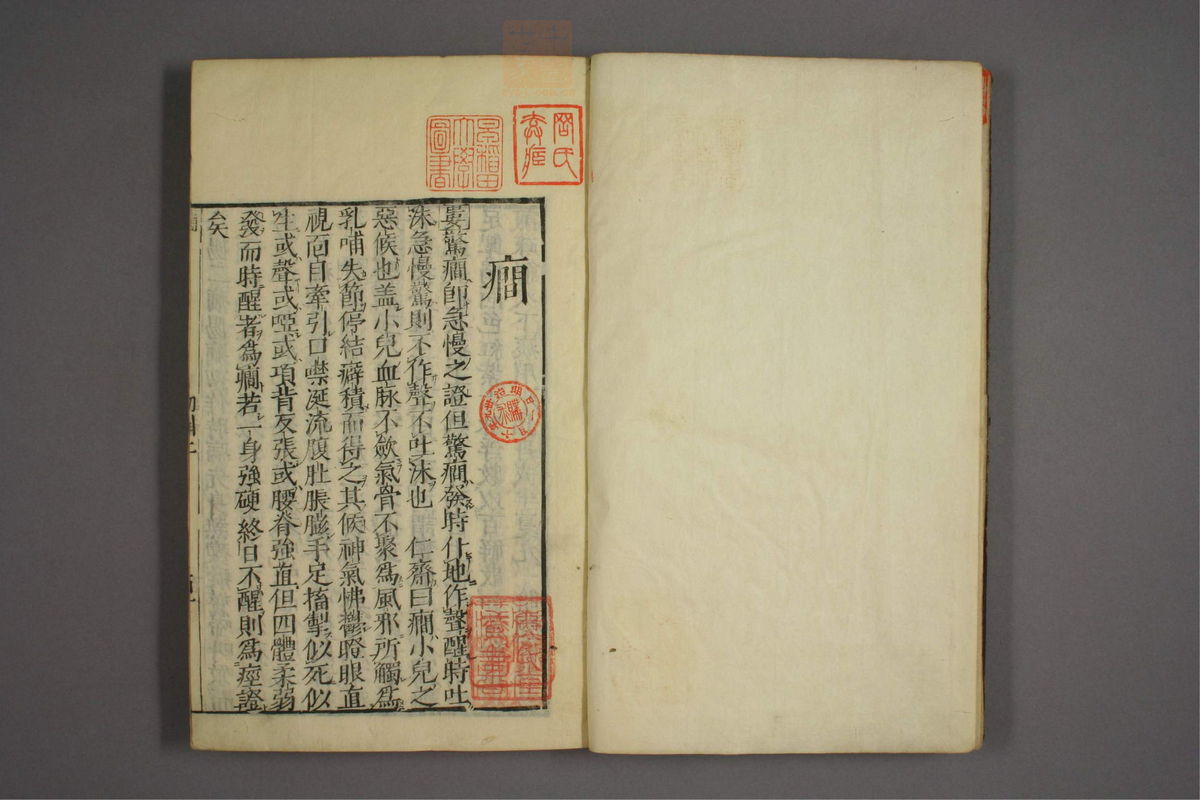 癎
婁驚癎卽急慢之證但驚癎發時仆地作聲醒時吐
沫急慢驚則不作聲不吐沫也 仁齋曰癎小兒之
惡候也盖小兒血脉不歛氣骨不聚爲風邪所觸爲
乳哺失節停結癖積而得之其候神氣怫鬱瞪眼直
視面目牽引口噤涎流腹肚脹膨手足搐掣似死似
生或聲或啞或項背反張或腰脊強直但四體柔弱
發而時醒者爲癎若一身強硬終日不醒則爲痙證
矣
早稲田
大學
圖書